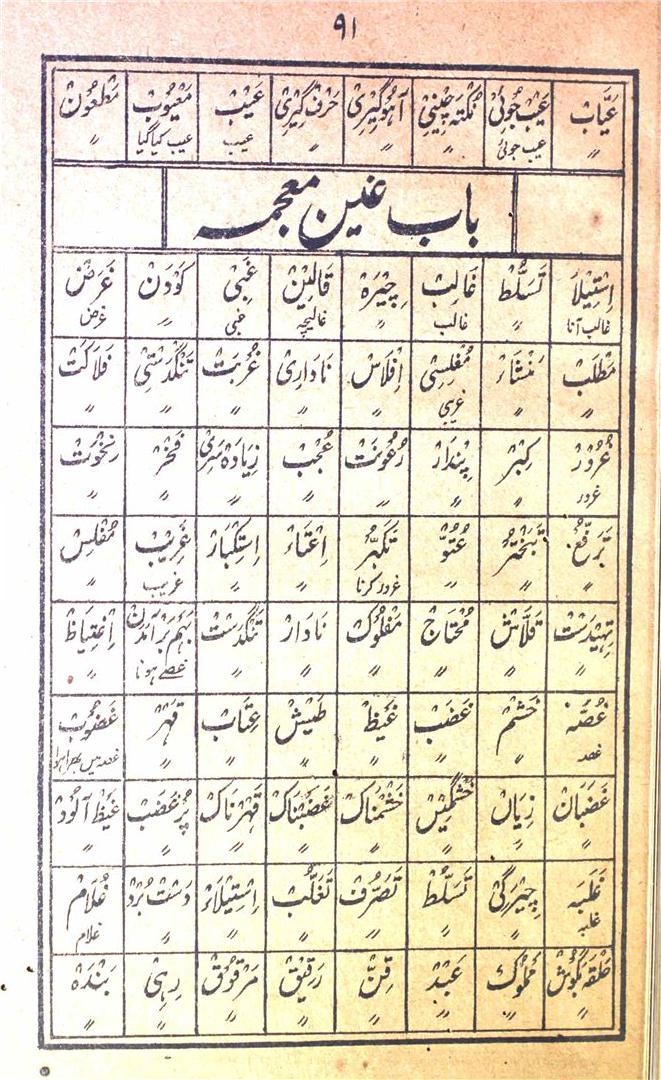 ۹۱
عَیَّابْ عَیبْ جُوئِیْ نُکْتَہ چِیْنِیْ آہُوگِیْرِیْ حَرْف گِیْرِیْ عَیْبْ مَعْیُوبْ مَطْعُونْ
〃 عیب جوئی 〃 〃 〃 عیب عیب کیا گیا 〃
باب غین معجمہ
اِسْتِیْلَا تَسَلُّطْ غَالِبْ چِیْرَہْ قَالِیْنْ غَبِیْ کَوْدَنْ غَرَضْ
غالب آنا 〃 غالب 〃 غالیچہ غبی 〃 غرض
مَطْلَبْ مَنْشَاءْ مُفْلِسِیْ اِفْلَاسْ نَادَارِیْ غُرْبَتْ تَنْگْدَسْتِیْ فَلَاکَتْ
〃 〃 غریبی 〃 〃 〃 〃 〃
غُرُوْرْ کِبْرْ پِنْدَارْ رُعُونَتْ عُجْبْ زِیَادَہ سَرِیْ فَخْرْ نَخْوَتْ
غرور 〃 〃 〃 〃 〃 〃 〃
تَرَفُّعْ تَبَخْتُرْ عُتُوّْ تَکَبُّرْ اِعْتَاءْ اِسْتِکْبَارْ غَرِیْبْ مُفْلِسْ
〃 〃 〃 غرور کرنا 〃 〃 غریب 〃
تِہِیْدَسْتْ قَلَّاشْ مُحْتَاجْ مَفْلُوْکْ نَادَارْ تَنْگْدَسْتْ بَہَمْ بَرْ آمَدَنْ اِغْتِیَاظْ
〃 〃 〃 〃 〃 〃 غصے ہونا 〃
غُصَّہْ خَشْمْ غَضَبْ غَیْظْ طَیْشْ عِتَابْ قَہْرْ غَضُوْبْ
غصہ 〃 〃 〃 〃 〃 〃 غصہ میں بھرا ہوا
غَضْبَانْ زِیَاںْ خَشْمْگِیْںْ خَشْمْنَاکْ غَضَبْنَاکْ قَہْرْنَاکْ پُرْ غَضَبْ غَیْظ آلُوْدْ
〃 〃 〃 〃 〃 〃 〃 〃
غَلَبَہْ چِیْرَگِیْ تَسَلُّطْ تَصَرُّفْ تَغَلُّبْ اِسْتِیْلَاءْ دَسْتْ بُرْدْ غُلَامْ
غلبہ 〃 〃 〃 〃 〃 〃 غلام
حَلْقَہ بَگُوْشْ مَمْلُوْکْ عَبْدْ قِنّْ رَقِیْقْ مَرْقُوْقْ رِہِیْ بَنْدَہْ
〃 〃 〃 〃 〃 〃 〃 〃